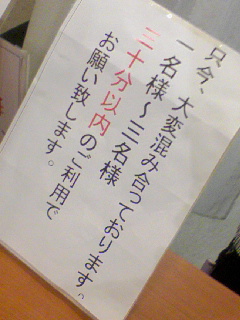 只今、大変混み合っております。
一名様～三名様
三十分以内のご利用で
お願い致します。